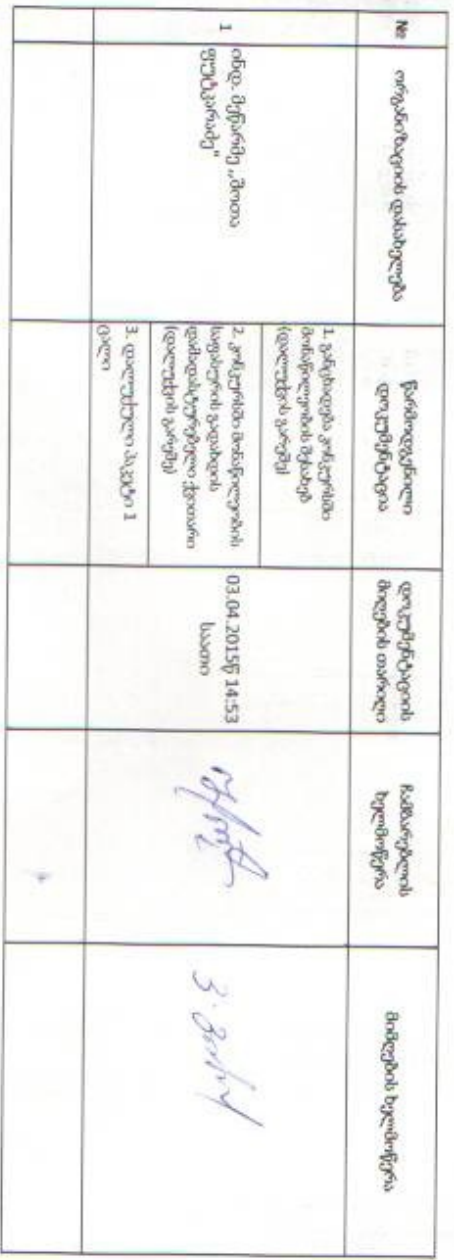 №
ორგანიზაციის დასახელება
წარმოდგენილი
დოკუმენტაცია
დოკუმენტაციის
მიღების თარიღი
ჩამბარებლის
ხელმოწერა
მიმღების ხელმოწერა
1
ინდ. მეწარმე „შოთა
ფუტკარაძე"
1. განცხადება კონკურსში
მონაწილეობის შესახებ
(დალუქვის გარეშე)
2. კონკურსში მონაწილეობის
საფასურის გადახდის
დამადასტურებელი ქვითარი
(დალუქვის გარეშე)
3. დალუქული პაკეტი 1
ცალი
03.04.2015წ 14:53
საათი